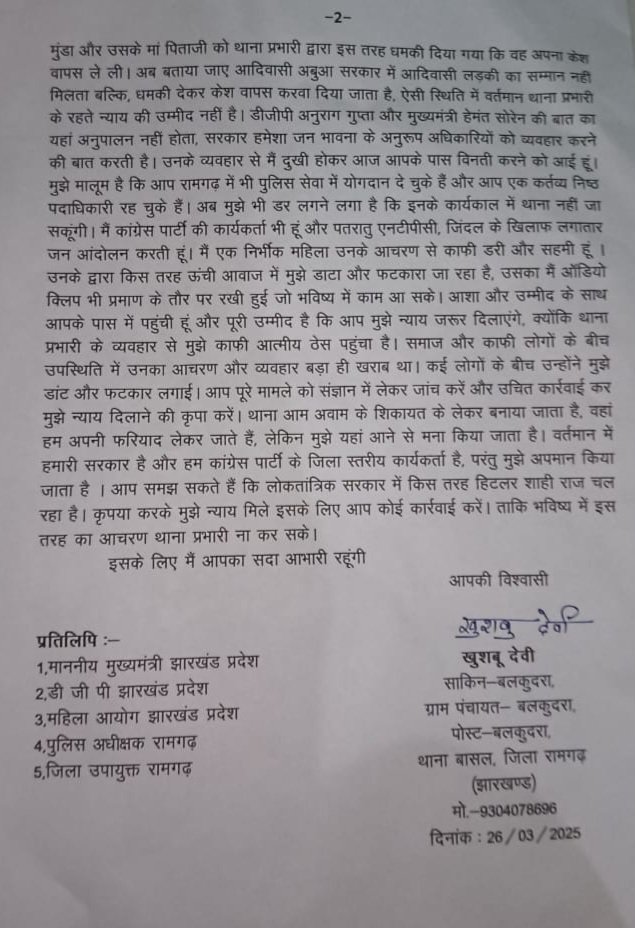 –2–
मुंडा और उसके मां पिताजी को थाना प्रभारी द्वारा इस तरह धमकी दिया गया कि वह अपना केश
वापस ले ली। अब बताया जाए आदिवासी अबुआ सरकार में आदिवासी लड़की का सम्मान नहीं
मिलता बल्कि, धमकी देकर केश वापस करवा दिया जाता है, ऐसी स्थिति में वर्तमान थाना प्रभारी
के रहते न्याय की उम्मीद नहीं है। डीजीपी अनुराग गुप्ता और मुख्यमंत्री हेमंत सोरेन की बात का
यहां अनुपालन नहीं होता, सरकार हमेशा जन भावना के अनुरूप अधिकारियों को व्यवहार करने
की बात करती है। उनके व्यवहार से मैं दुखी होकर आज आपके पास विनती करने को आई हूं।
मुझे मालूम है कि आप रामगढ़ में भी पुलिस सेवा में योगदान दे चुके हैं और आप एक कर्तव्य निष्ठ
पदाधिकारी रह चुके हैं। अब मुझे भी डर लगने लगा है कि इनके कार्यकाल में थाना नहीं जा
सकूंगी। मैं कांग्रेस पार्टी की कार्यकर्ता भी हूं और पतरातु एनटीपीसी, जिंदल के खिलाफ लगातार
जन आंदोलन करती हूं। मैं एक निर्भीक महिला उनके आचरण से काफी डरी और सहमी हूं ।
उनके द्वारा किस तरह ऊंची आवाज में मुझे डाटा और फटकारा जा रहा है, उसका मैं ऑडियो
क्लिप भी प्रमाण के तौर पर रखी हुई जो भविष्य में काम आ सके। आशा और उम्मीद के साथ
आपके पास में पहुंची हूं और पूरी उम्मीद है कि आप मुझे न्याय जरूर दिलाएंगे, क्योंकि थाना
प्रभारी के व्यवहार से मुझे काफी आत्मीय ठेस पहुंचा है। समाज और काफी लोगों के बीच
उपस्थिति में उनका आचरण और व्यवहार बड़ा ही खराब था। कई लोगों के बीच उन्होंने मुझे
डांट और फटकार लगाई। आप पूरे मामले को संज्ञान में लेकर जांच करें और उचित कार्रवाई कर
मुझे न्याय दिलाने की कृपा करें। थाना आम अवाम के शिकायत के लेकर बनाया जाता है, वहां
हम अपनी फरियाद लेकर जाते हैं, लेकिन मुझे यहां आने से मना किया जाता है। वर्तमान में
हमारी सरकार है और हम कांग्रेस पार्टी के जिला स्तरीय कार्यकर्ता है, परंतु मुझे अपमान किया
जाता है । आप समझ सकते हैं कि लोकतांत्रिक सरकार में किस तरह हिटलर शाही राज चल
रहा है। कृपया करके मुझे न्याय मिले इसके लिए आप कोई कार्रवाई करें। ताकि भविष्य में इस
तरह का आचरण थाना प्रभारी ना कर सके।
इसके लिए मैं आपका सदा आभारी रहूंगी
आपकी विश्वासी
खुशबु देवी
खुशबू देवी
साकिन–बलकुदरा,
ग्राम पंचायत– बलकुदरा,
पोस्ट–बलकुदरा,
थाना बासल, जिला रामगढ़
(झारखण्ड)
मो.–9304078696
दिनांक : 26/03/2025
प्रतिलिपि :–
1,माननीय मुख्यमंत्री झारखंड प्रदेश
2,डी जी पी झारखंड प्रदेश
3,महिला आयोग झारखंड प्रदेश
4,पुलिस अधीक्षक रामगढ़
5,जिला उपायुक्त रामगढ़